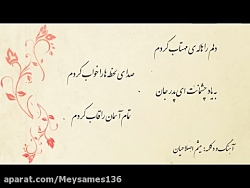 دلم را هاله‌ی مهتاب کردم
صدای لحظه ها را خواب کردم
به یاد چشمانت ای پدر جان
تمام آسمان را قاب کردم
آهنگ و دکلمه: میثم اصلاحیان
aparat.com/Meysames136